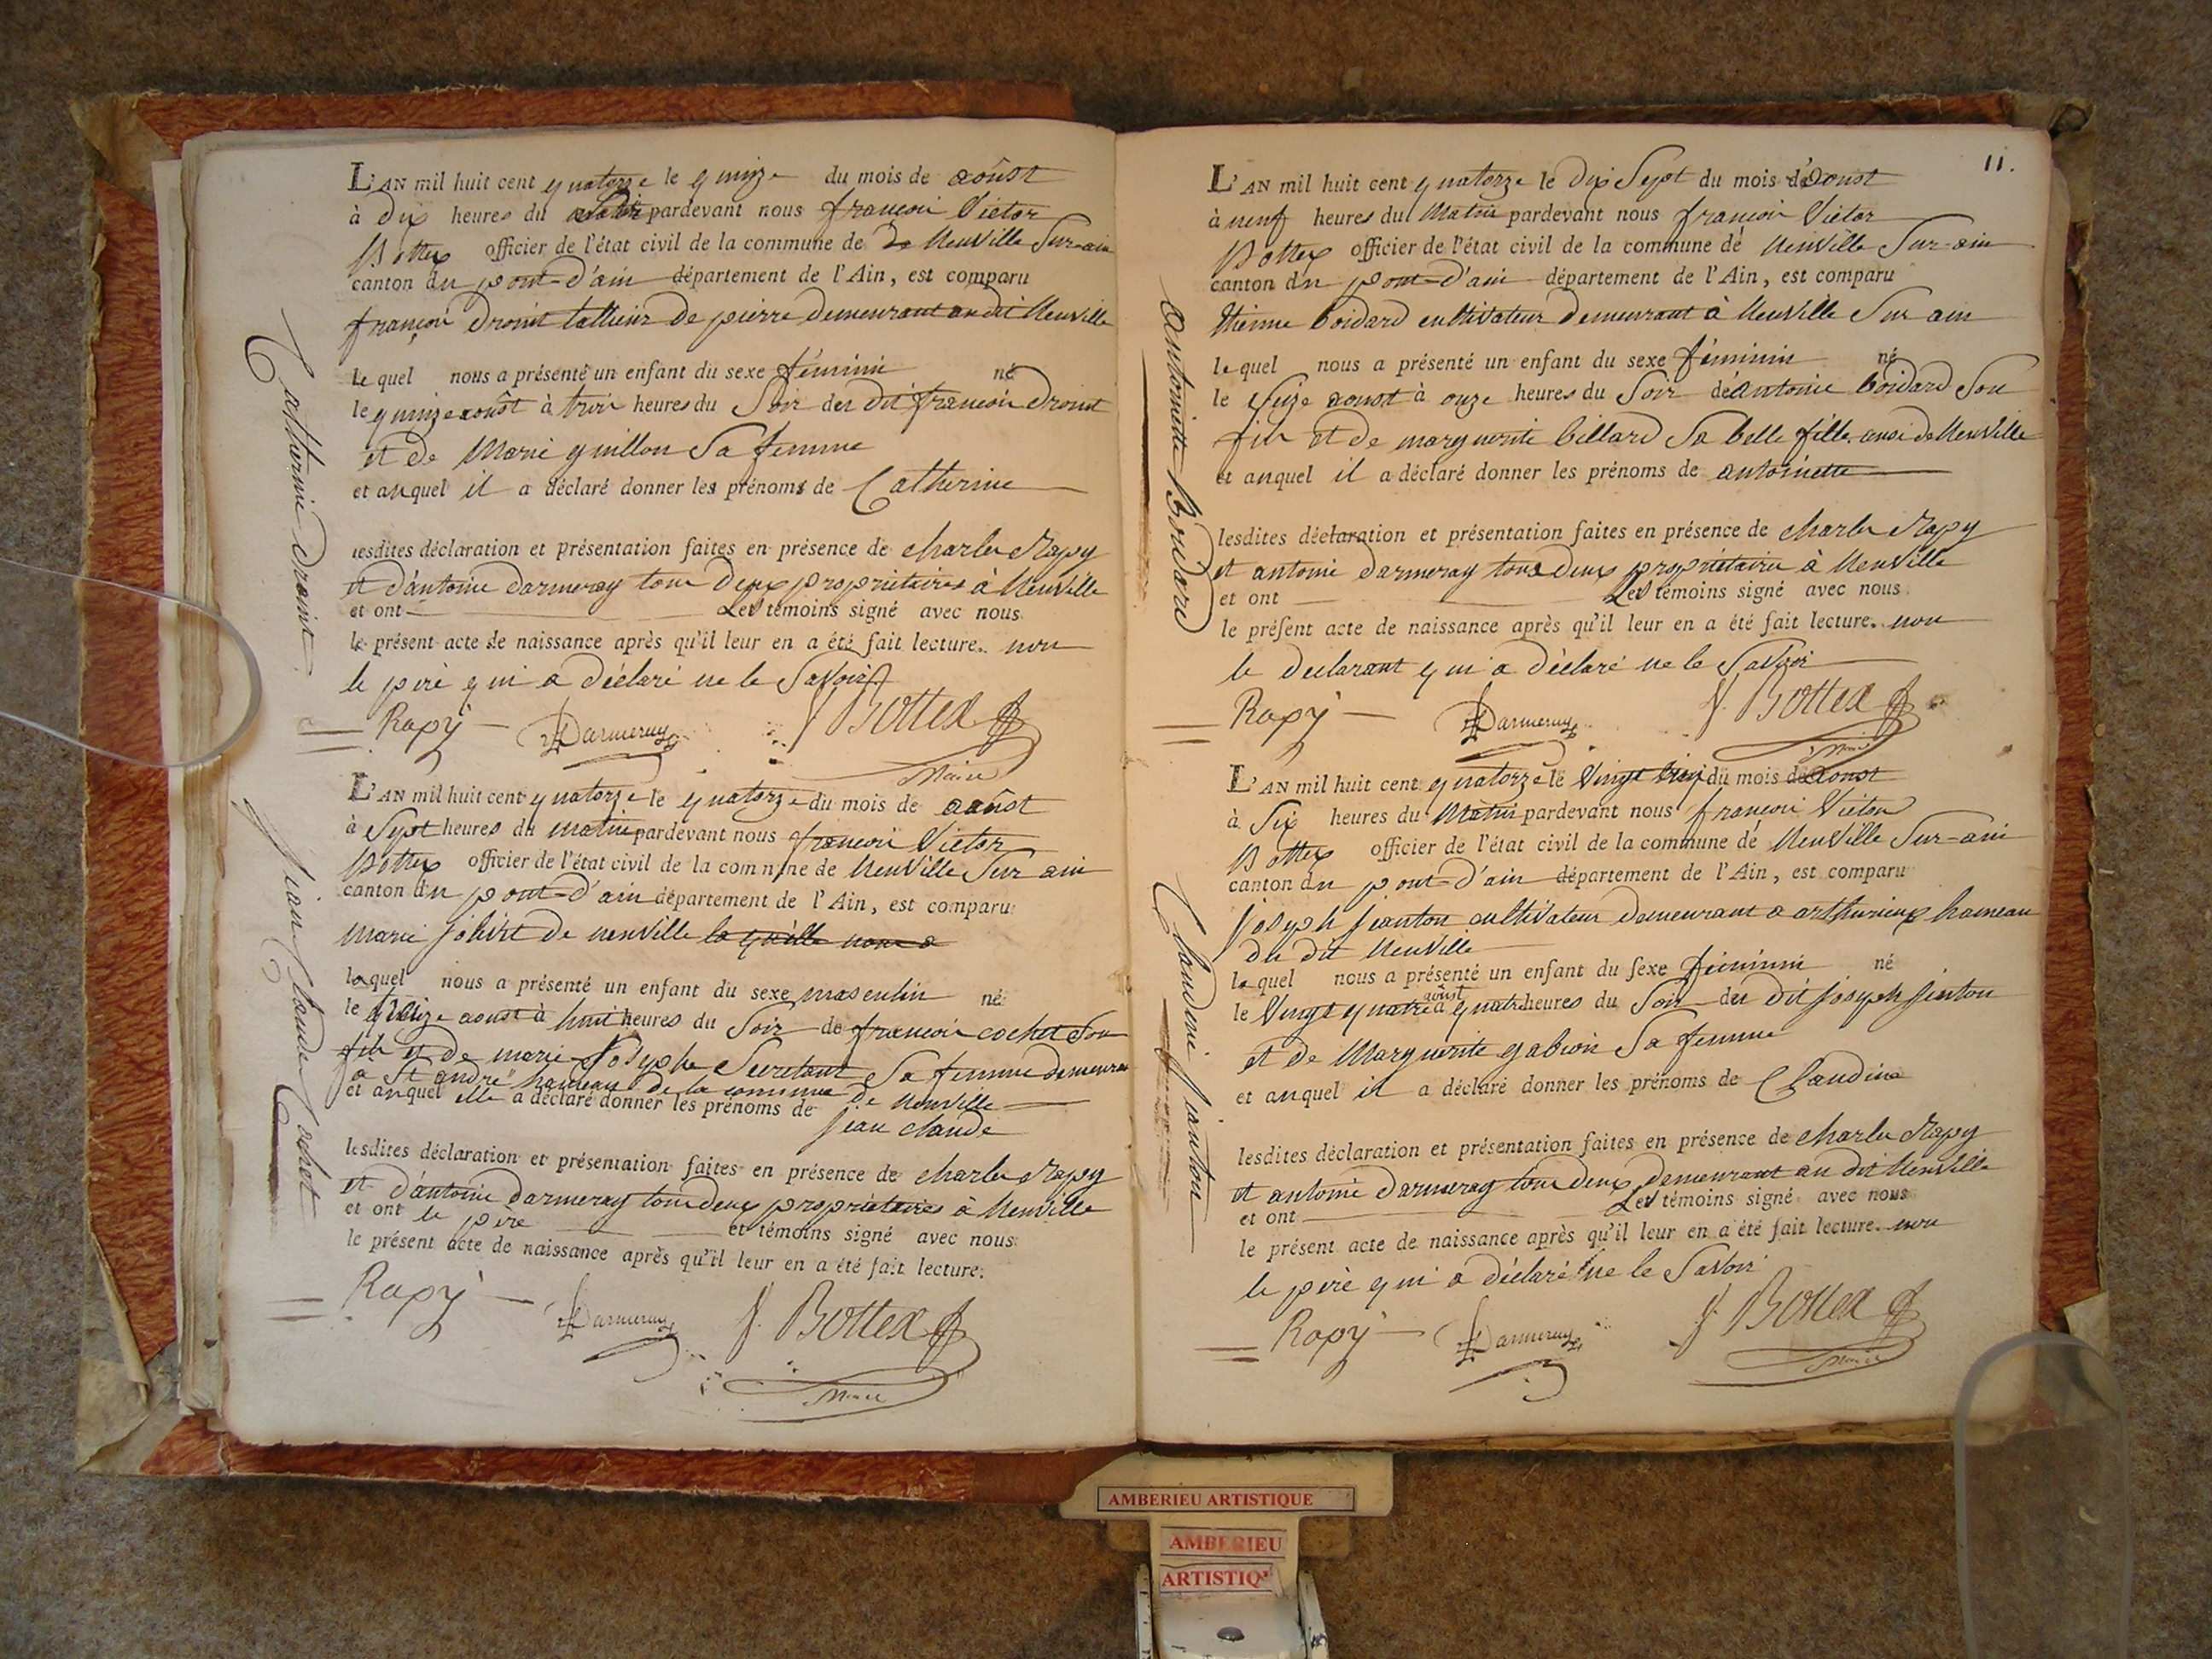 L'AN mil huit cent quatorze le quinze du mois de août
à dix heures du pardevant nous françois Victor
Bottex officier de l'état civil de la commune de Neuville Sur-ain
canton du pont-d'ain département de l'Ain, est comparu
françois Droint tallieur de pierre demeurant au dit Neuville
le quel nous a présenté un enfant du sexe féminin né
le quinze août à trois heures du Soir du dit françois Droint
et de Marie guillon Sa femme
et auquel il a déclaré donner les prénoms de Catherine
lesdites déclaration et présentation faites en présence de charles Rapy
et d'antoine darmeray tous deux propriétaires à Neuville
et ont Les témoins signé avec nous
le présent acte de naissance après qu'il leur en a été fait lecture. non
le père qui a déclaré ne le Savoir
Rapy Darmeray f. Bottex
Maire
Catherine Droint
L'AN mil huit cent quatorze le quatorze du mois de août
à Sept heures du matin pardevant nous françois Victor
Bottex officier de l'état civil de la commune de Neuville Sur ain
canton du pont-d'ain département de l'Ain, est comparu
marie Jolivet de neuville la quelle nous a
laquel nous a présenté un enfant du sexe masculin né
le treize aoust à huit heures du Soir de françois cochet Son
fils et de marie Josephe Secretant Sa femme demeurant
a St andré hameau de la commune de Neuville
et auquel elle a déclaré donner les prénoms de
jean claude
lesdites déclaration et présentation faites en présence de charles Rapy
et d'antoine darmeray tous deux propriétaires à Neuville
et ont le père et témoins signé avec nous
le présent acte de naissance après qu'il leur en a été fait lecture.
Rapy Darmeray f. Bottex
Maire
jean Claude Cochet
11.
L'AN mil huit cent quatorze le dix Sept du mois d'aoust
à neuf heures du Matin pardevant nous françois Victor
Bottex officier de l'état civil de la commune de Neuville Sur-ain
canton du pont-d'ain département de l'Ain, est comparu
Etienne boidard cultivateur demeurant à Neuville Sur ain
le quel nous a présenté un enfant du sexe féminin né
le Seize aoust à onze heures du Soir de antoine boidard Son
fils et de marguerite billard Sa belle fille, aussi de Neuville
et auquel il a déclaré donner les prénoms de antoinette
lesdites déclaration et présentation faites en présence de charles Rapy
et antoine darmeray tous deux propriétaires à Neuville
et ont Les témoins signé avec nous
le présent acte de naissance après qu'il leur en a été fait lecture. non
le declarant qui a déclaré ne le Savoir
Rapy Darmeray f. Bottex
Maire
Antoinette Boidard
L'AN mil huit cent quatorze le Vingt cinq du mois de aoust
à Six heures du Matin pardevant nous françois Victor
Bottex officier de l'état civil de la commune de Neuville Sur-ain
canton du pont-d'ain département de l'Ain, est comparu
joseph jeanton cultivateur demeurant a arthurieux hameau
du dit Neuville
le quel nous a présenté un enfant du sexe féminin né
le Vingt quatre août à quatre heures du Soir du dit joseph jeanton
et de Marguerite gabion Sa femme
et auquel il a déclaré donner les prénoms de Claudine
lesdites déclaration et présentation faites en présence de charles Rapy
et antoine darmeray tous deux demeurant au dit Neuville
et ont Les témoins signé avec nous
le présent acte de naissance après qu'il leur en a été fait lecture. non
le père qui a déclaré ne le Savoir
Rapy Darmeray f. Bottex
Maire
Claudine jeanton
AMBERIEU ARTISTIQUE
AMBERIEU
ARTISTIQ